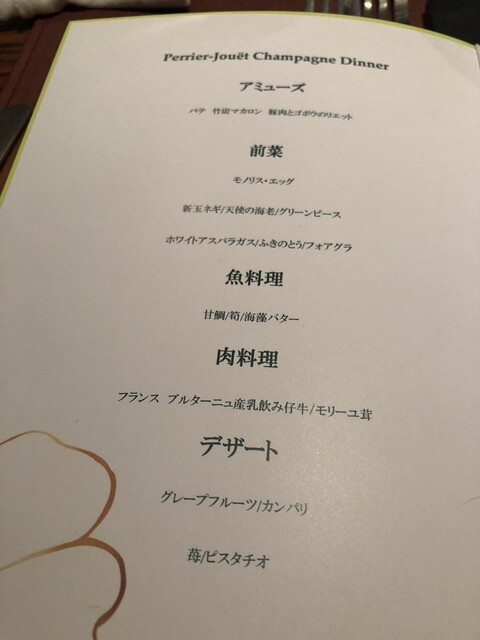 Perrier-Jouët Champagne Dinner
アミューズ
パテ 竹炭マカロン 豚肉とゴボウのリエット
前菜
モノリス・エッグ
新玉ネギ/天使の海老/グリーンピース
ホワイトアスパラガス/ふきのとう/フォアグラ
魚料理
甘鯛/筍/海藻バター
肉料理
フランス ブルターニュ産乳飲み仔牛/モリーユ茸
デザート
グレープフルーツ/カンパリ
苺/ピスタチオ